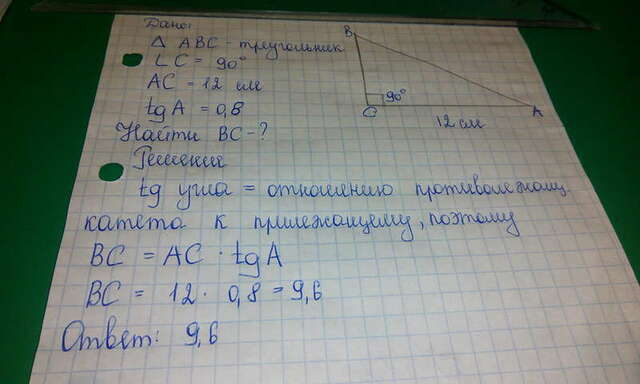 Дано:
Δ ABC - треугольник
∠ C = 90°
AC = 12 см
tg A = 0,8
Найти BC - ?
Решение
tg угла = отношению противолежащ
катета к прилежащему, поэтому
BC = AC · tg A
BC = 12 · 0,8 = 9,6
Ответ: 9,6
B
90°
C
A
12 см